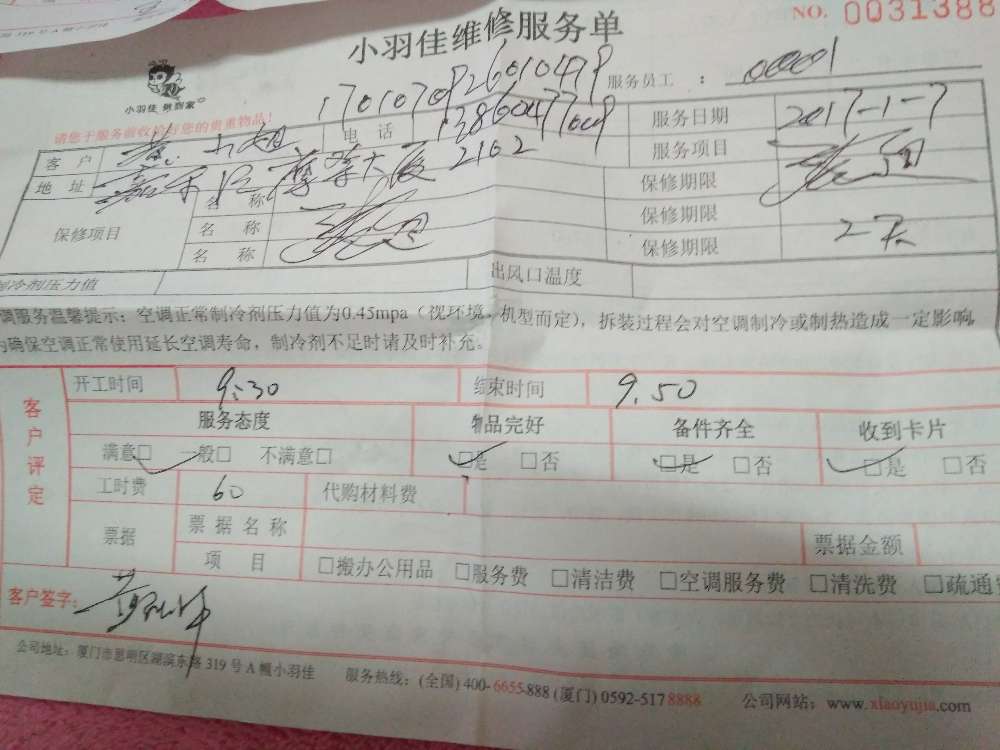 NO. 0031388
小羽佳维修服务单
小羽佳 俐到家
服务员工 : 00001
1701070926010479
请您于服务前收拾好您的贵重物品!
客户 黄小姐 电话 13860477009 服务日期 2017-1-7
地址 摩大厦2162 服务项目
保修项目 名称 保修期限
名称 保修期限
名称 保修期限 2天
制冷剂压力值 出风口温度
调服务温馨提示：空调正常制冷剂压力值为0.45mpa（视环境、机型而定），拆装过程会对空调制冷或制热造成一定影响，
为确保空调正常使用延长空调寿命，制冷剂不足时请及时补充。
客户评定
开工时间 9:30 结束时间 9.50
服务态度 物品完好 备件齐全 收到卡片
满意□ 一般□ 不满意□ □是 □否 □是 □否 □是 □否
工时费 60 代购材料费
票据 票据名称 票据金额
项目 □搬办公用品 □服务费 □清洁费 □空调服务费 □清洗费 □疏通
客户签字：
公司地址：厦门市思明区湖滨东路319号A幢小羽佳 服务热线：(全国) 400-6655-888 (厦门) 0592-5178888 公司网站：www.xiaoyujia.com